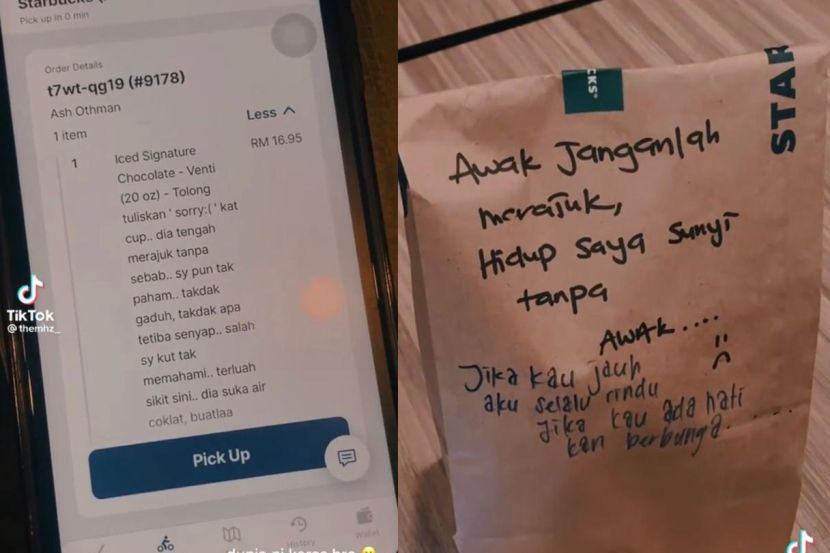 Starbucks
Pick up in 0 min
Order Details
t7wt-qg19 (#9178)
Ash Othman
1 item
Less
1
Iced Signature
RM 16.95
Chocolate - Venti
(20 oz) - Tolong
tuliskan ' sorry:( ' kat
cup.. dia tengah
merajuk tanpa
sebab.. sy pun tak
paham.. takdak
gaduh, takdak apa
tetiba senyap.. salah
sy kut tak
memahami.. terluah
sikit sini.. dia suka air
coklat, buatlaa
Pick Up
History
Wallet
TikTok
@themhz_
CKS®
STAR
Awak Janganlah
merajuk,
Hidup saya sunyi
tanpa
AWAK....
:(
Jika kau jauh
aku selalu rindu
Jika kau ada hati
kan berbunga.....